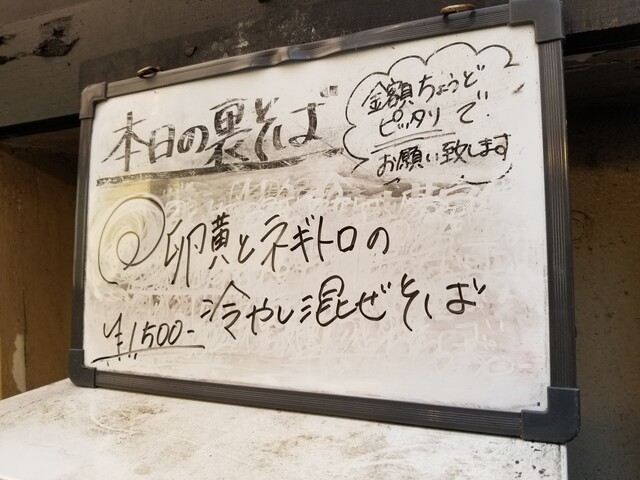 本日の裏そば
金額ちょうど
ピッタリで
お願い致します
卵黄とネギトロの
冷やし混ぜそば
¥1500-